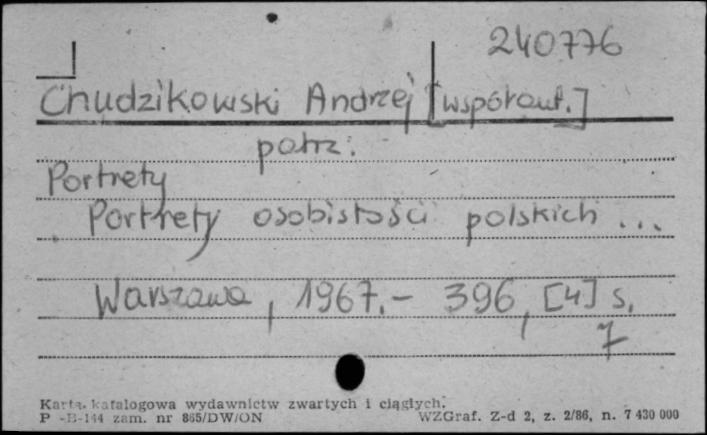 240776
Chudzikowski Andrzej [współaut.]
patrz:
Portrety
Portrety osobistości polskich ...
Warszawa, 1967.- 396, [4] s.
7
Karta katalogowa wydawnictw zwartych i ciągłych.
P -B-144 zam. nr 865/DW/ON WZGraf. Z-d 2, z. 2/86, n. 7 430 000